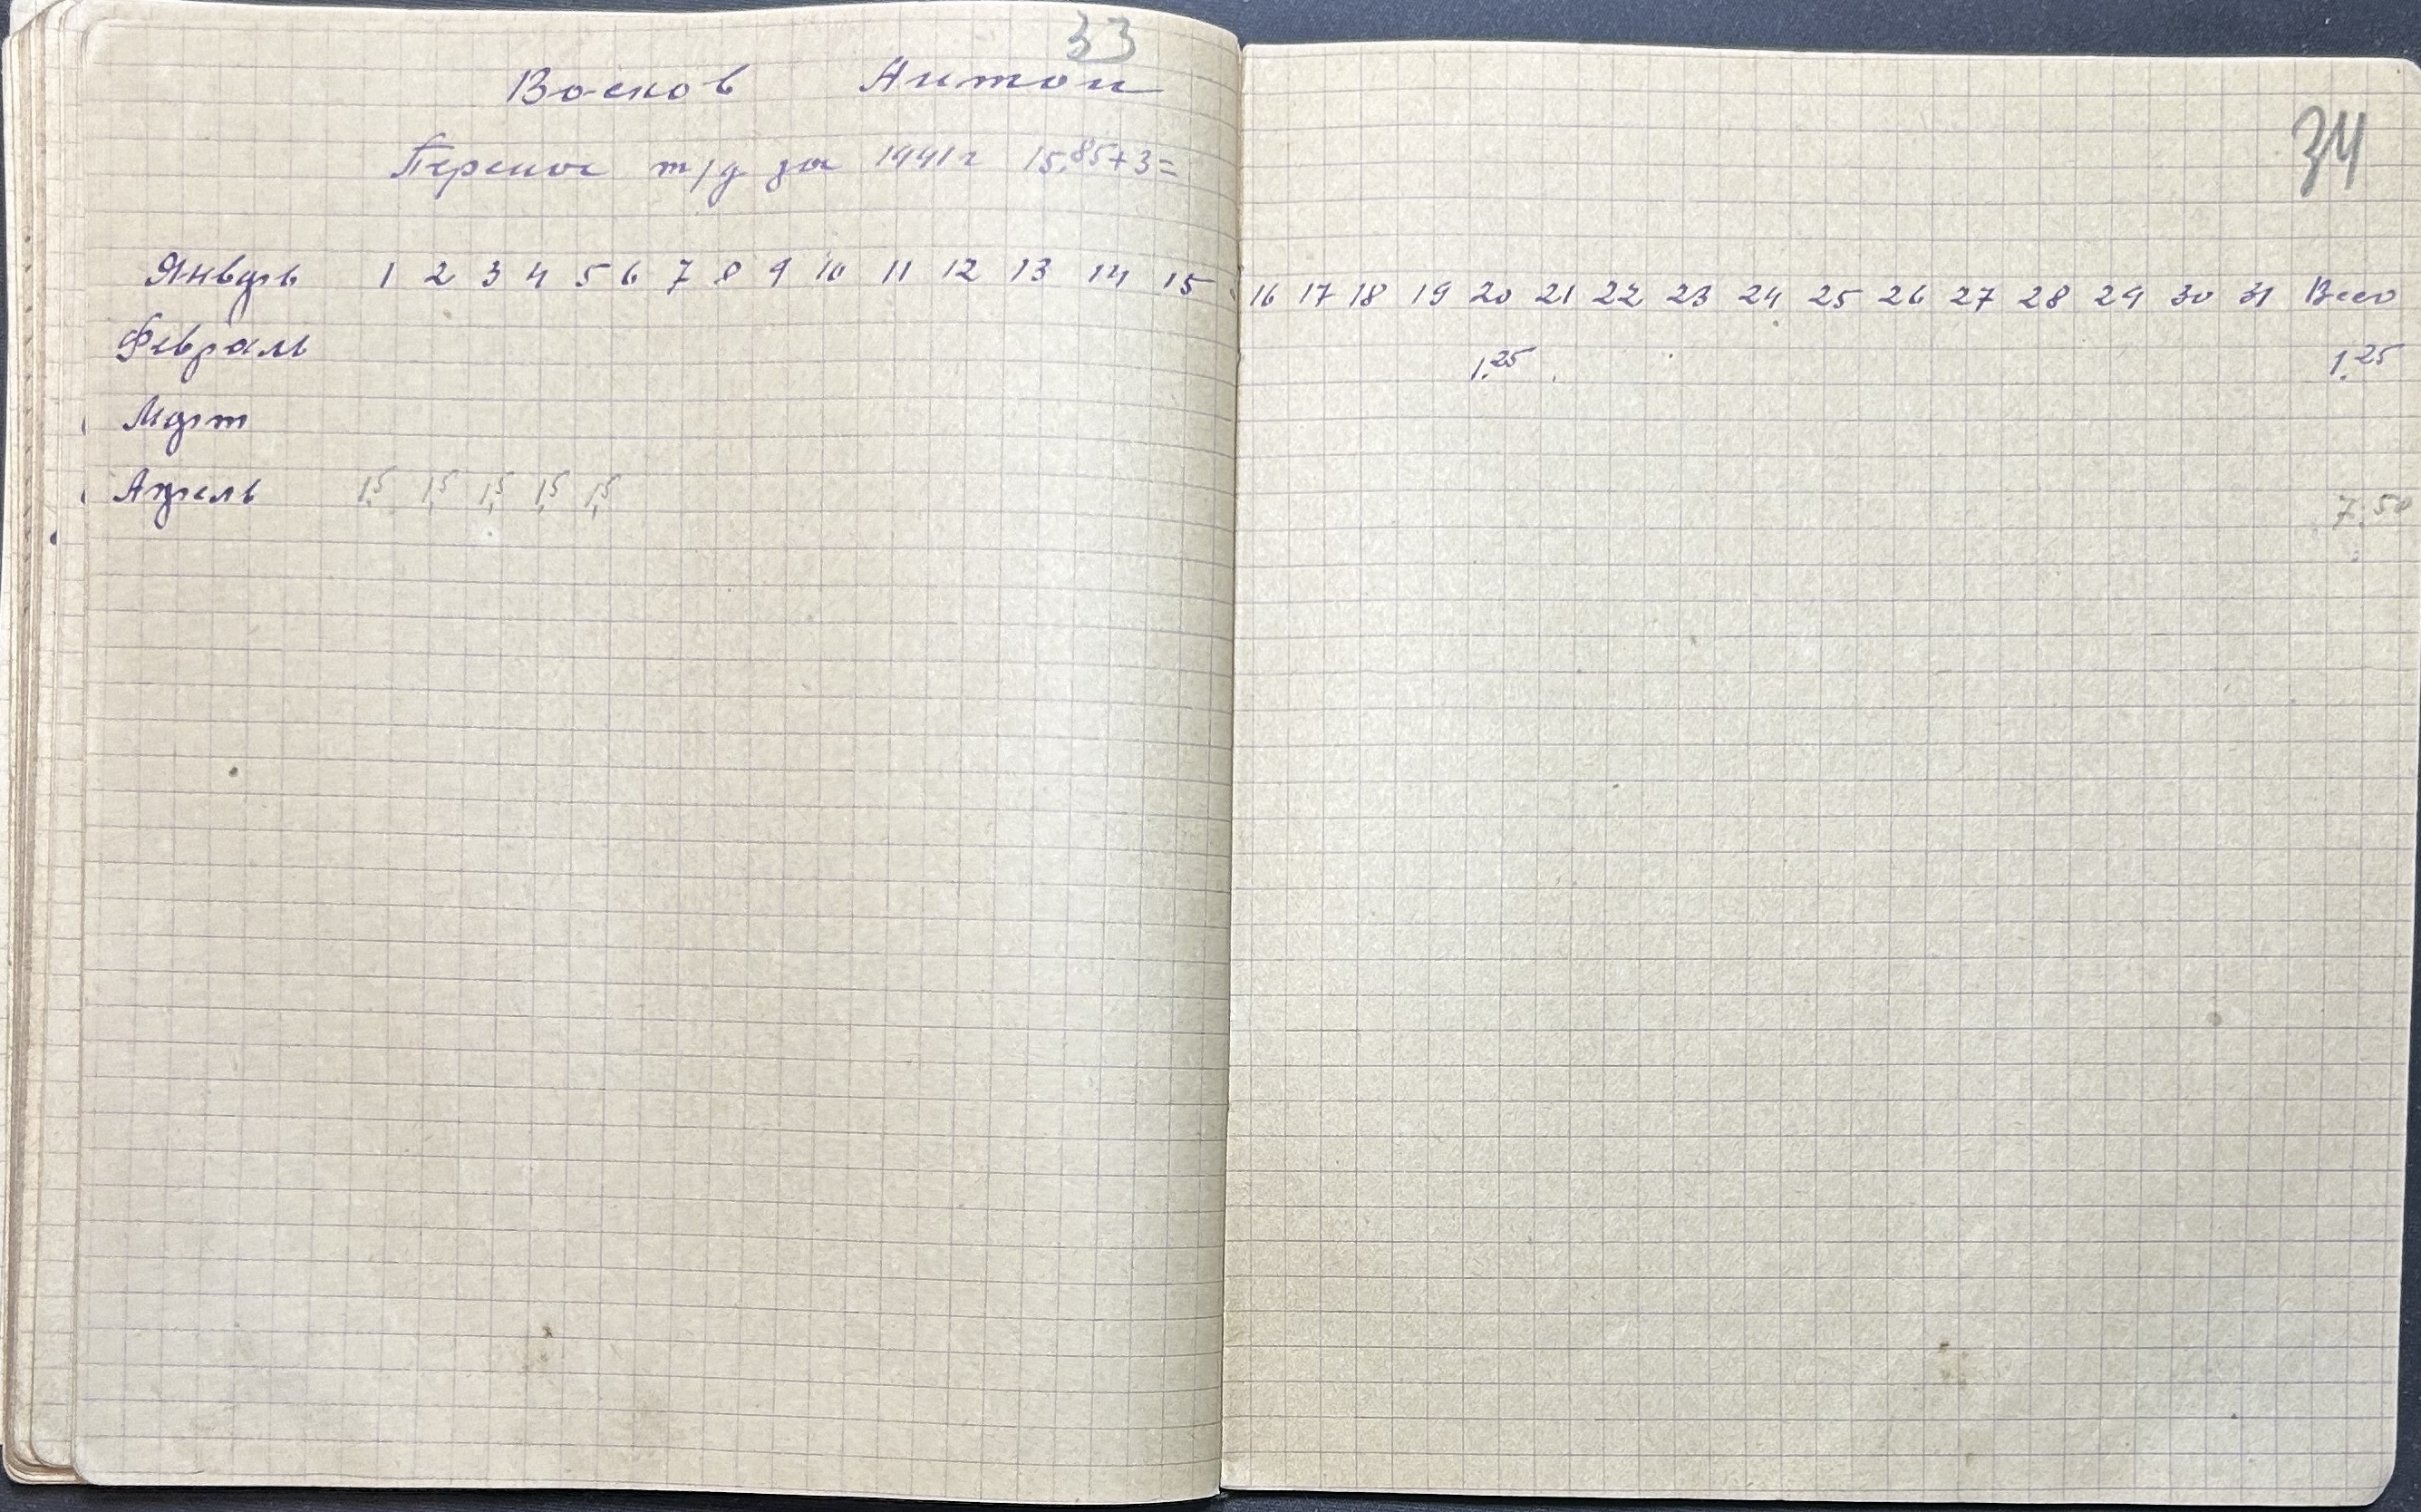 33
Восков Антон
Перенос т/д за 1941г 15.85+3=
34
Январь 1 2 3 4 5 6 7 8 9 10 11 12 13 14 15 16 17 18 19 20 21 22 23 24 25 26 27 28 29 30 31 Всего
Февраль 1.25 1.25
Март
Апрель 1,5 1,5 1,5 1,5 1,5 7.50